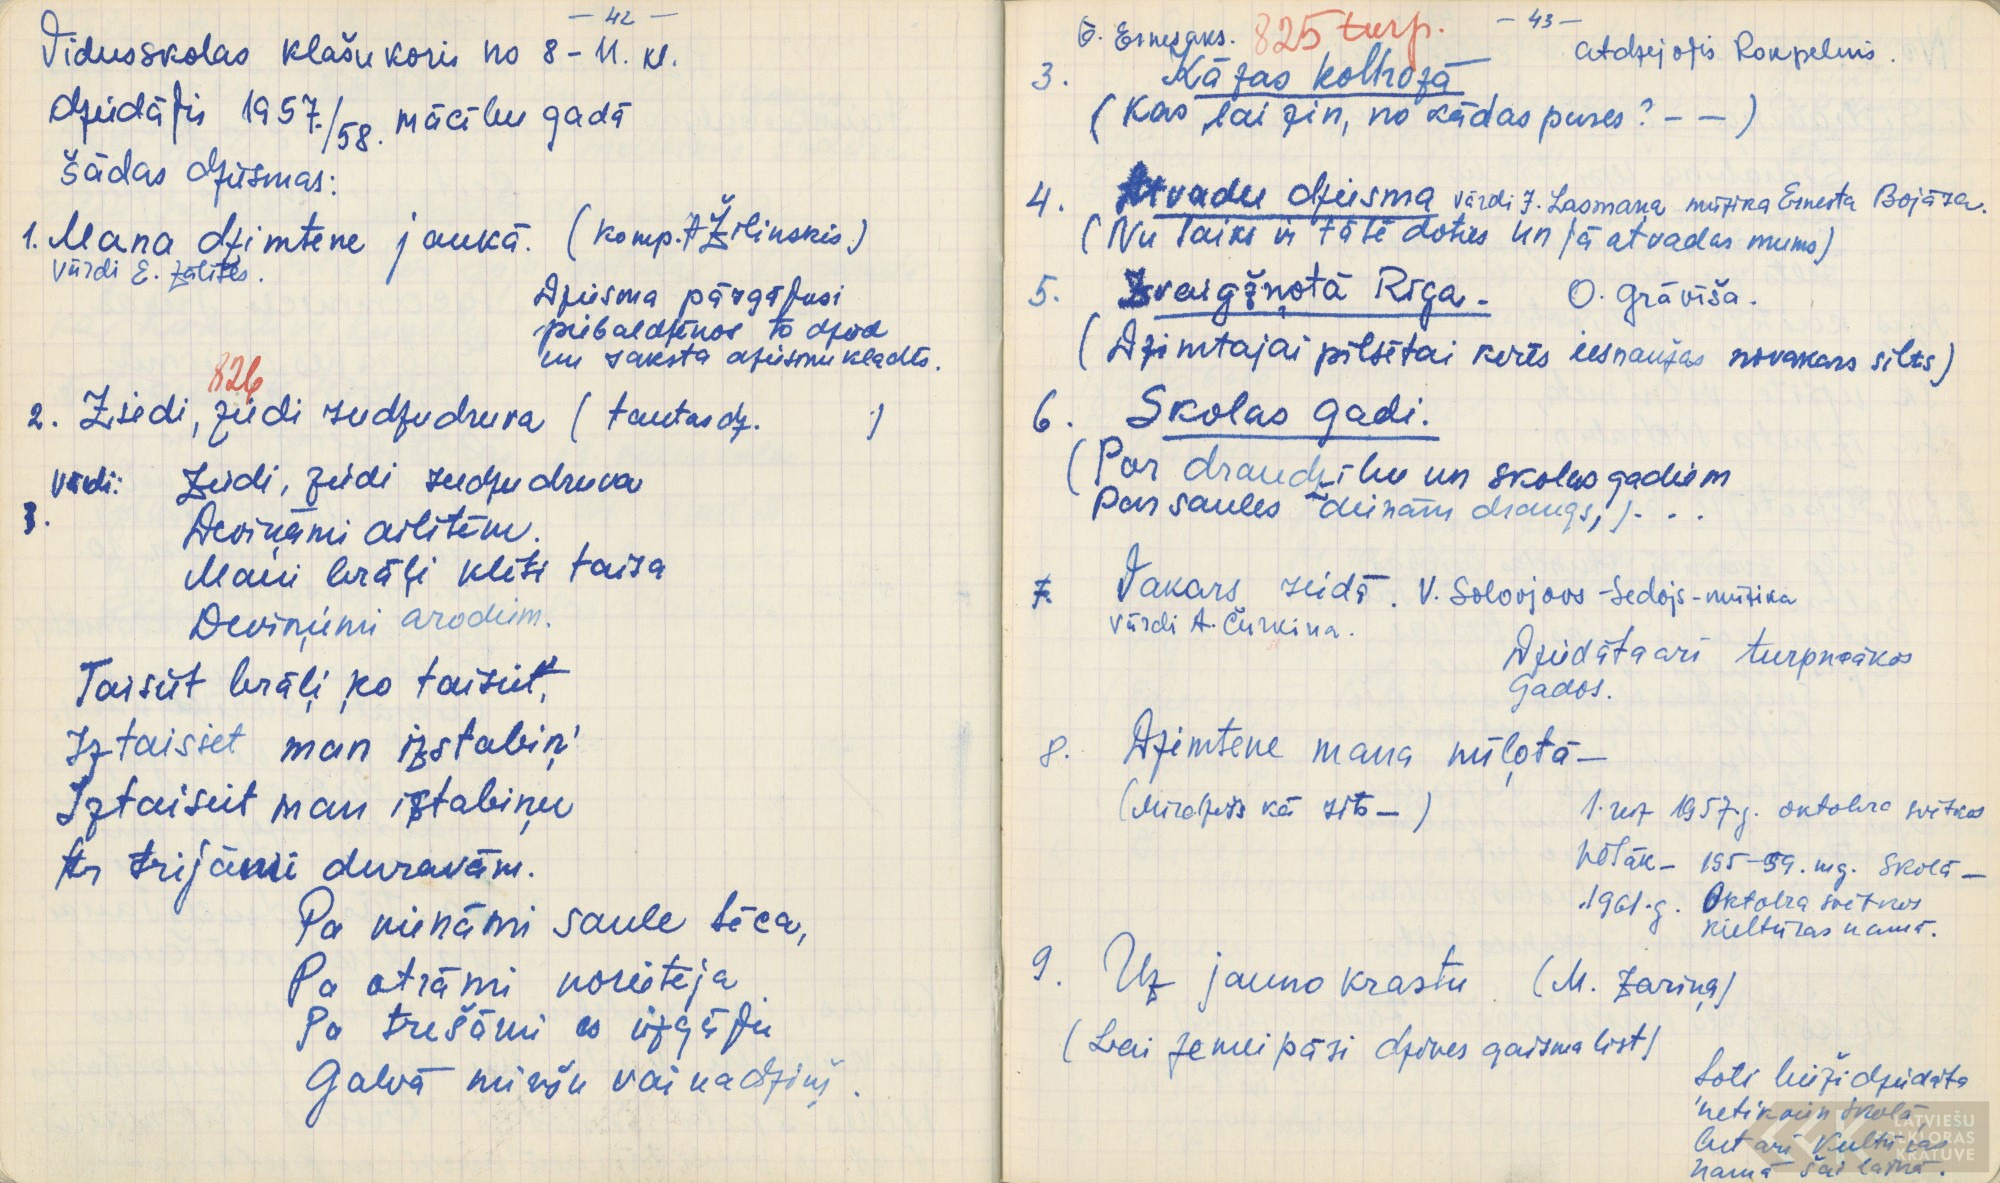 — 42 —
Vidusskolas klašu koris no 8 – 11. kl.
dziedājis 1957./58. mācību gadā
šādas dziesmas:
1. Mana dzimtene jaukā. (komp. A Žilinskis)
vārdi E. Zālītes.
Dziesma pārgājusi
piebaldzēnos to dzied
un raksta dziesmu kladēs.
826
2. Ziedi, ziedi rudzu druva (tautas dz. )
vārdi: Ziedi, ziedi rudzu druva
3. Deviņāmi ailītēm.
Mani brāļi klēti taisa
Deviņiemi arodiem.
Taisiet brāļi, ko taisiet,
Iztaisiet man izstabiņ'
Iztaisiet man istabiņu
Ar trijāmi duravām.
Pa vienāmi saule lēca,
Pa otrāmi norietēja
Pa trešāmi es izgāju
Galvā miršu vainadziņš.
— 43 —
G. Ernesaks. 825 turp. Atdzejojis Rokpelnis.
3. Kāzas kolhozā
(Kas lai zin, no kādas puses? – –)
4. Atvadu dziesma vārdi J. Lasmaņa mūzika Ernesta Bojāra.
(Nu laiks ir tālē doties un jā atvadas mums)
5. Zvaigžņotā Rīga. O. Grāvīša.
(Dzimtajai pilsētai krēs iesnaužas novakars silts)
6. Skolas gadi.
(Par draudzību un skolas gadiem
Par saules dienām draugs,) . . .
7. Vakars reidā. V. Solovjovs – Sedojs – mūzika
vārdi A. Čurkina.
Dziedāta arī turpmākos
Gados.
8. Dzimtene mana mīļotā –
(Mirdzošs kā rīts –)
1. reiz 1957. g. oktobra svētkos
vēlāk – 195-59. mg. skolā –
1961. g. Oktobra svētkos
kultūras namā.
9. Uz jauno krastu (M. Zariņa)
(Lai zemei pāri dzīves gaisma līst)
Ļoti bieži dziedāta
netikvien skolā
bet arī Kultūras
namā šai laikā.
LATVIEŠU
FOLKLORAS
KRĀTUVE